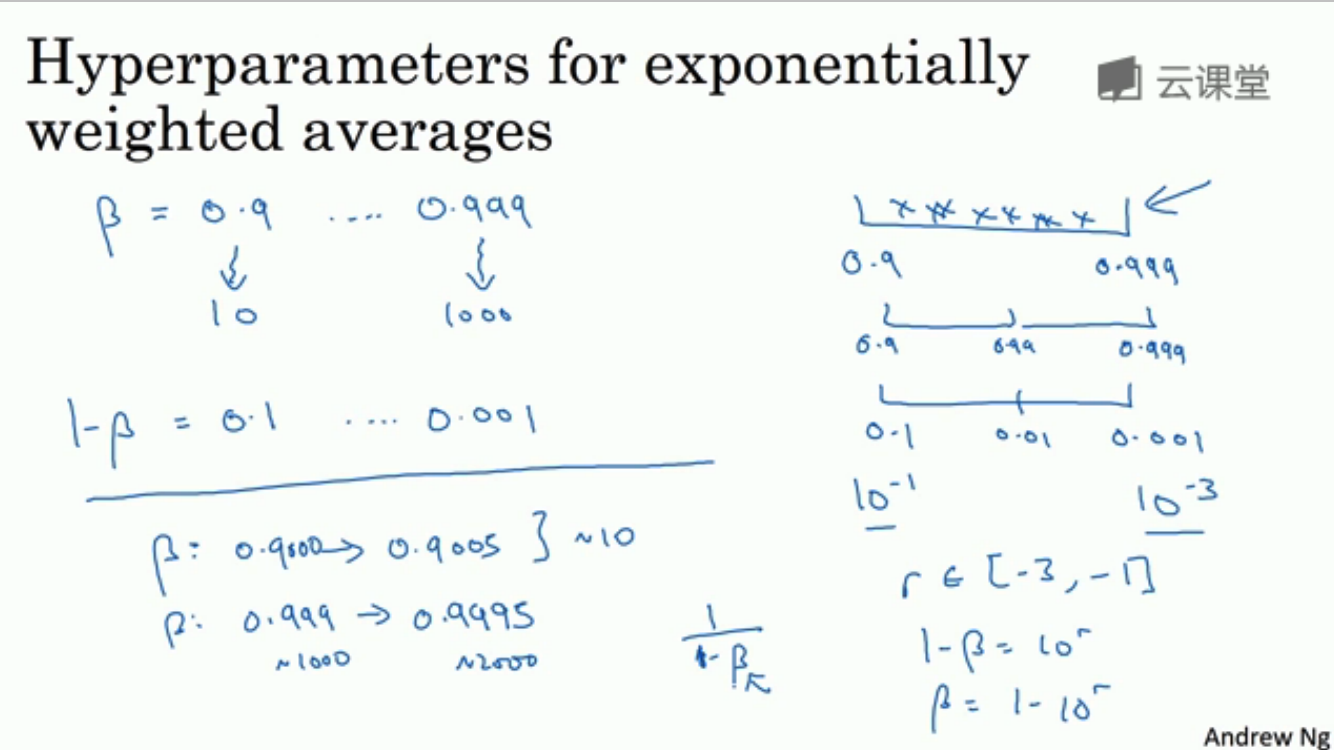 Hyperparameters for exponentially
weighted averages
云课堂
β = 0.9 .... 0.999
10 1000
1-β = 0.1 .... 0.001
β: 0.9000 → 0.9005 } ~10
β: 0.999 → 0.9995
~1000 ~2000
1
1-β
0.9 0.999
0.9 0.99 0.999
0.1 0.01 0.001
10⁻¹ 10⁻³
r ∈ [-3, -1]
1-β = 10ʳ
β = 1-10ʳ
Andrew Ng